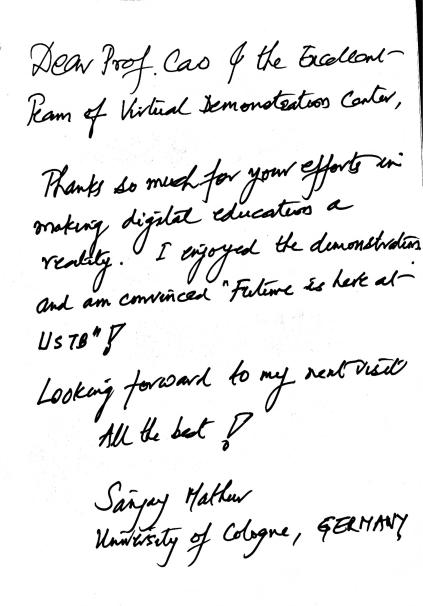 Dear Prof. Cao & the Excellent
Team of Virtual Demonstration Center,
Thanks so much for your efforts in
making digital education a
reality. I enjoyed the demonstration
and am convinced "Future is here at
USTB"!
Looking forward to my next visit
All the best!
Sanjay Mathur
University of Cologne, GERMANY